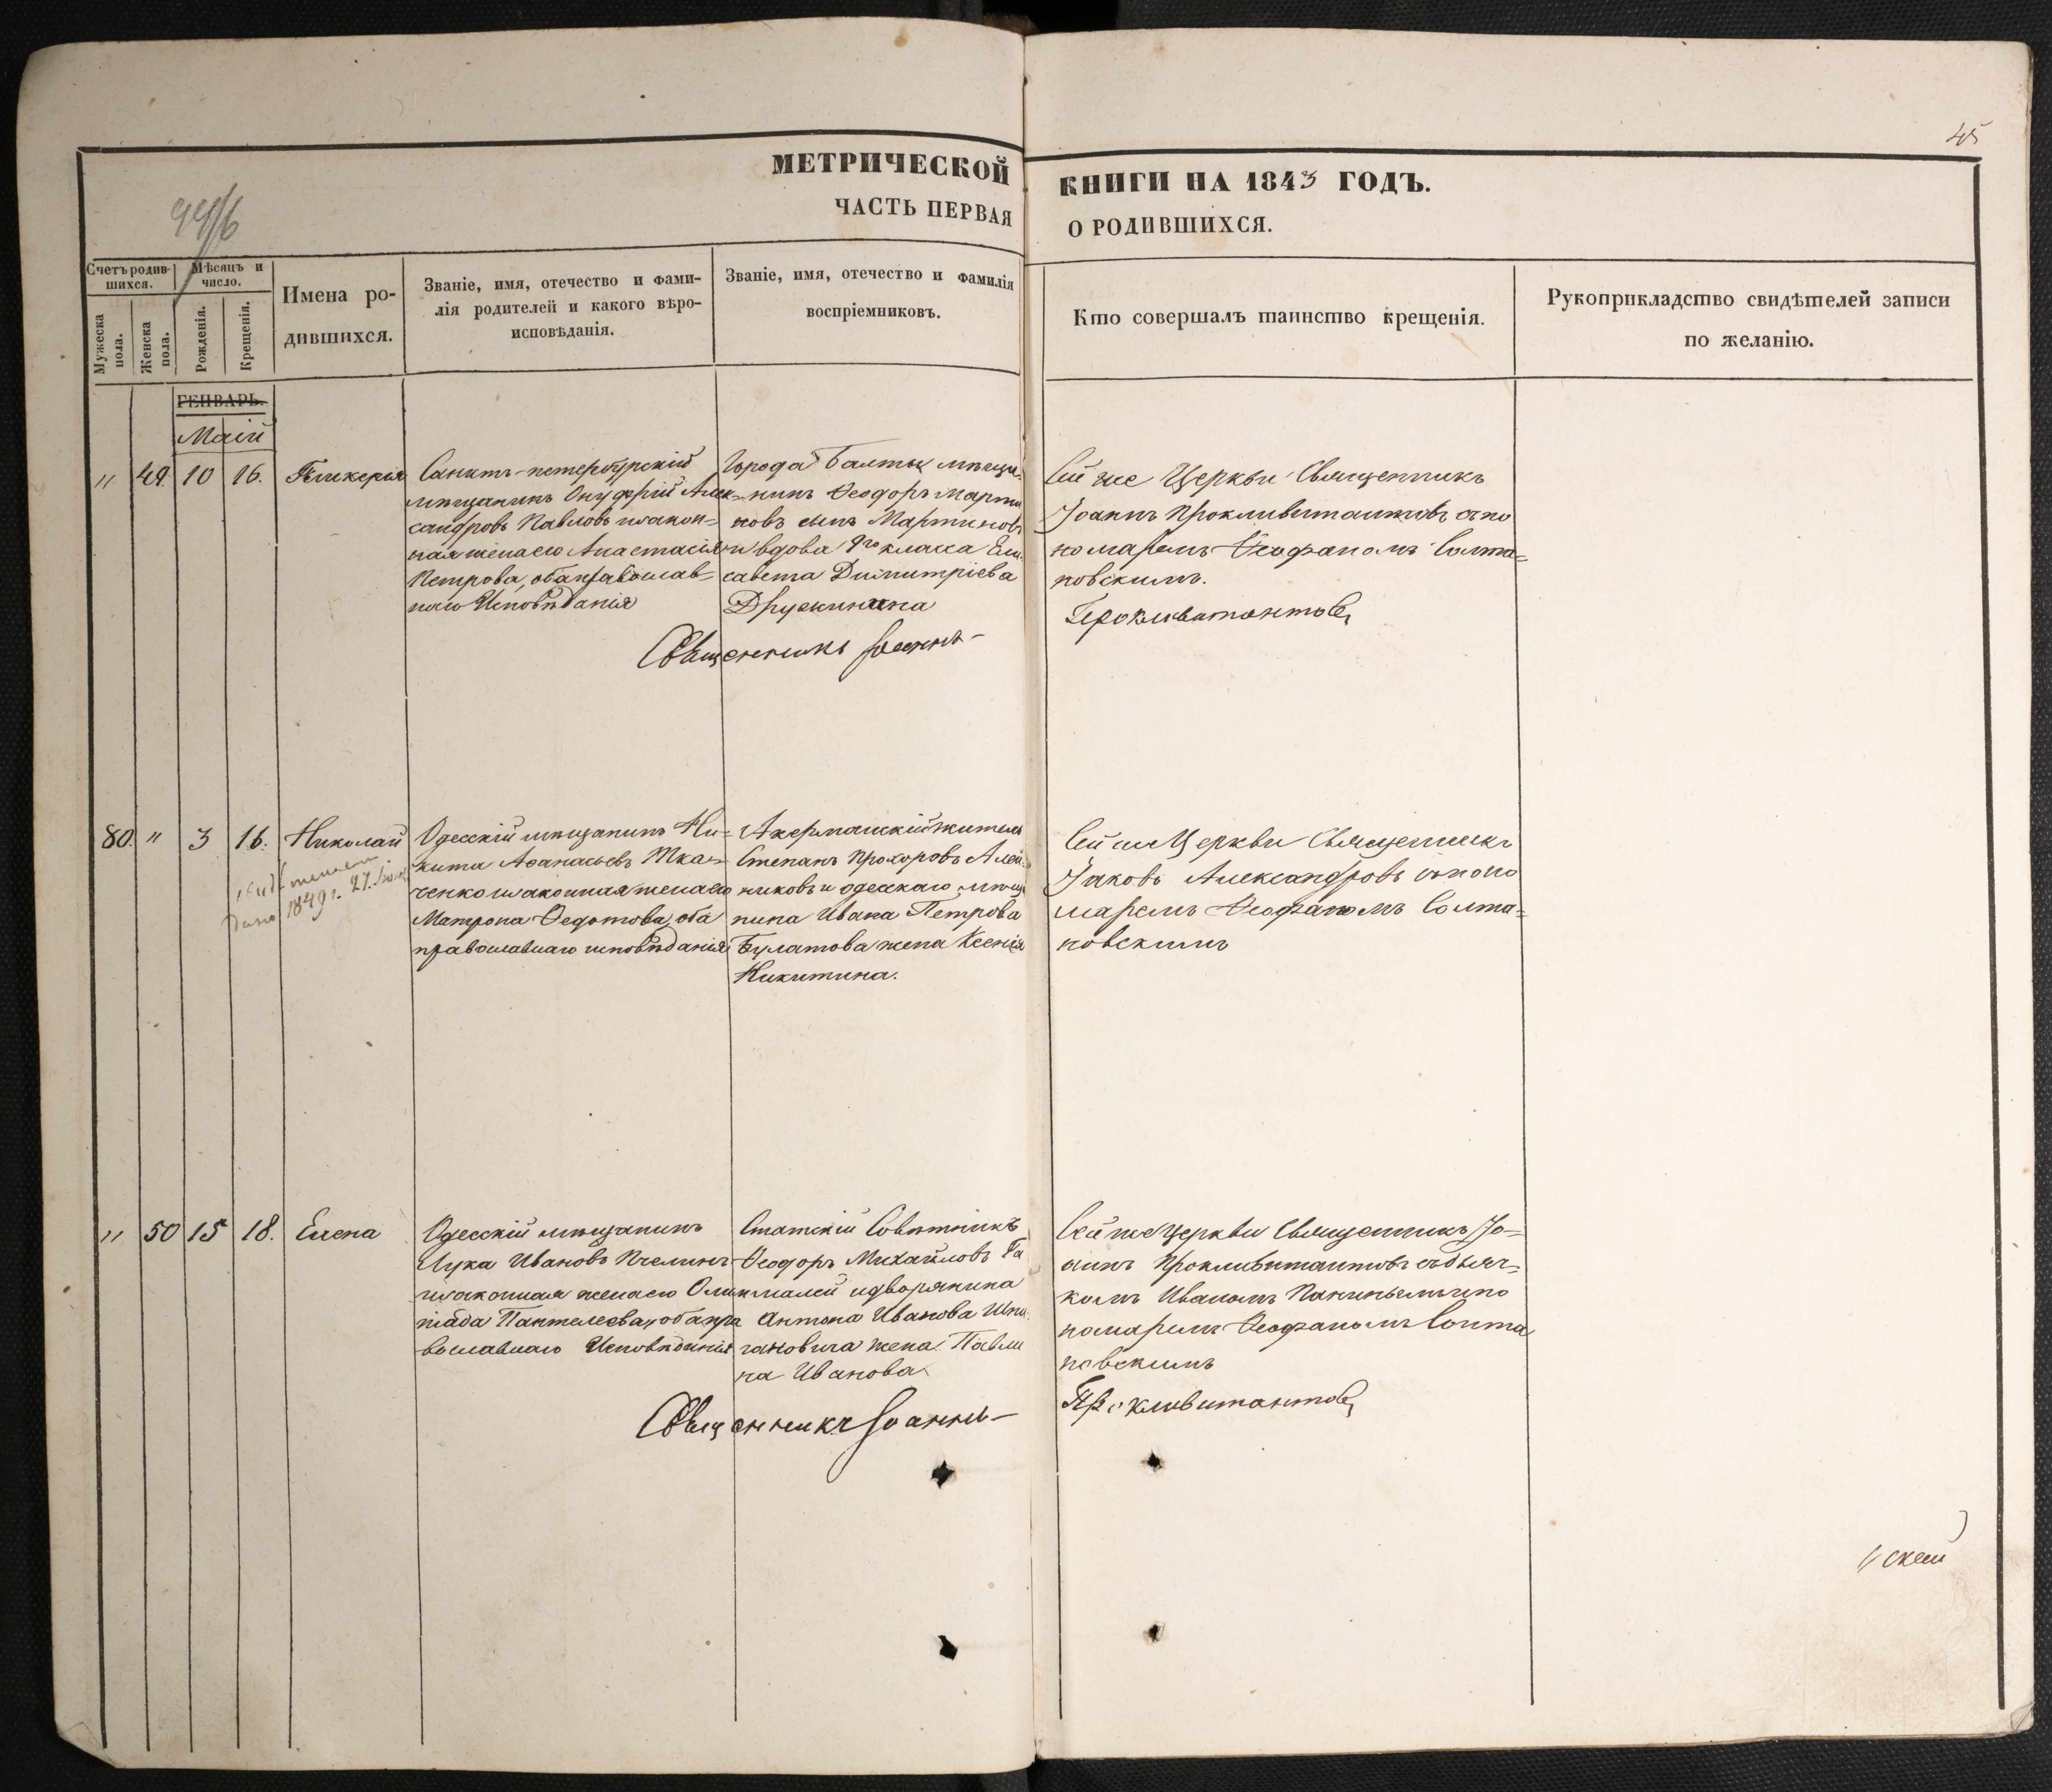 45
МЕТРИЧЕСКОЙ
КНИГИ НА 1843 ГОДЪ.
ЧАСТЬ ПЕРВАЯ
О РОДИВШИХСЯ.
Счетъ родив-
шихся.
Мѣсяцъ и
число.
Мужеска
пола.
Женска
пола.
Рожденія.
Крещенія.
Имена ро-
дившихся.
Званіе, имя, отечество и фами-
лія родителей и какого вѣро-
исповѣданія.
Званіе, имя, отечество и фамилія
воспріемниковъ.
Кто совершалъ таинство крещенія.
Рукоприкладство свидѣтелей записи
по желанію.
ГЕНВАРЬ.
Маій
" 49. 10 16. Гликерія
Санктъ-петербурскій
мѣщанинъ Онуфрій Алек-
сандровъ Павловъ изакон-
ная женаего Анастасія
Петрова, оба православ-
наго Исповѣданія
Города Балты мѣща-
нинъ Ѳеодоръ Марти
новъ сынъ Мартиновъ
и вдова 9го класса Ели
савета Димитріева
Дружинина
Сей же Церкви Священникъ
Іоаннъ Прокливитантовъ съ по
номаремъ Ѳеофаномъ Солта-
новскимъ.
Священникъ Іоаннъ
Прокливитантовъ
80. " 3 16. Николай
дано 1849 г. 27
Одесскій мѣщанинъ Ни-
кита Аѳанасьевъ Тка-
ченко изаконная женаего
Матрона Ѳедотова, оба
православнаго исповѣданія
Акерманскій житель
Степанъ Прохоровъ Алей
никовъ и одесскаго мѣща
нина Ивана Петрова
Булатова жена Ксенія
Никитина.
Сей же Церкви Священникъ
Іаковъ Александровъ съ поно
маремъ Ѳеофаномъ Солта-
новскимъ
" 50 15 18. Елена
Одесскій мѣщанинъ
Лука Ивановъ Пчелинъ
изаконная женаего Олим
піада Пантелеева, оба пра
вославнаго Исповѣданія
Статскій Совѣтникъ
Ѳеодоръ Михайловъ Га
малей идворянина
Антона Иванова
жена Павли
на Иванова
Сей же Церкви Священникъ Іо-
аннъ Прокливитантовъ съ дьяч-
комъ Иваномъ ипо
номаремъ Ѳеофаномъ Солта
новскимъ
Священникъ Іоаннъ
Прокливитантовъ